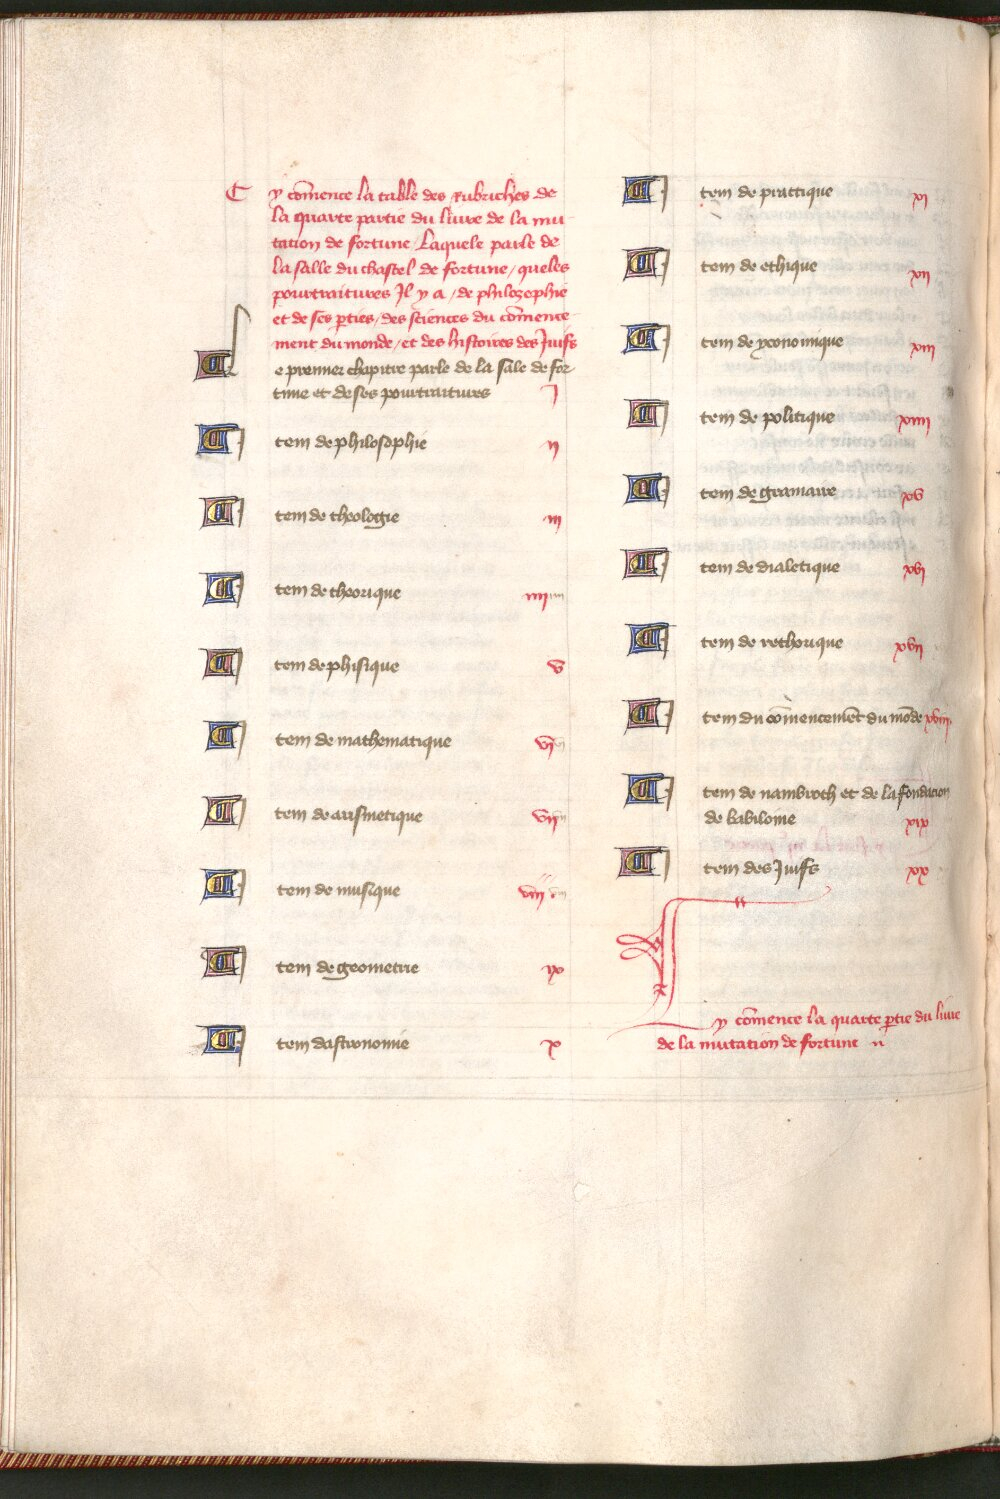 Cy cōmence la table des rubriches de
la quarte partie du livre de la mu
tation de fortune / Laquele parle de
la salle du chastel de fortune / queles
pourtraitures Il y a / de philozophie
et de ses pties / des sciences du cōmence
ment du monde / et des histoires des Juifs
Le premier chapitre parle de la sale de for
tune et de ses pourtraitures j
Item de philosophie ij
Item de theologie iij
Item de theorique iiij
Item de phisique v
Item de mathematique vj
Item de arismetique vij
Item de musique viij
Item de geometrie ix
Item dastronomie x
Item de practique xj
Item de ethique xij
Item de yconomique xiij
Item de politique xiiij
Item de gramaire xv
Item de dialetique xvj
Item de rethorique xvij
Item du cōmencemēt du mōde xviij
Item de nambroth et de la fondacion
de babiloine xix
Item des Juifs xx
Cy cōmence la quarte ptie du livre
de la mutation de fortune